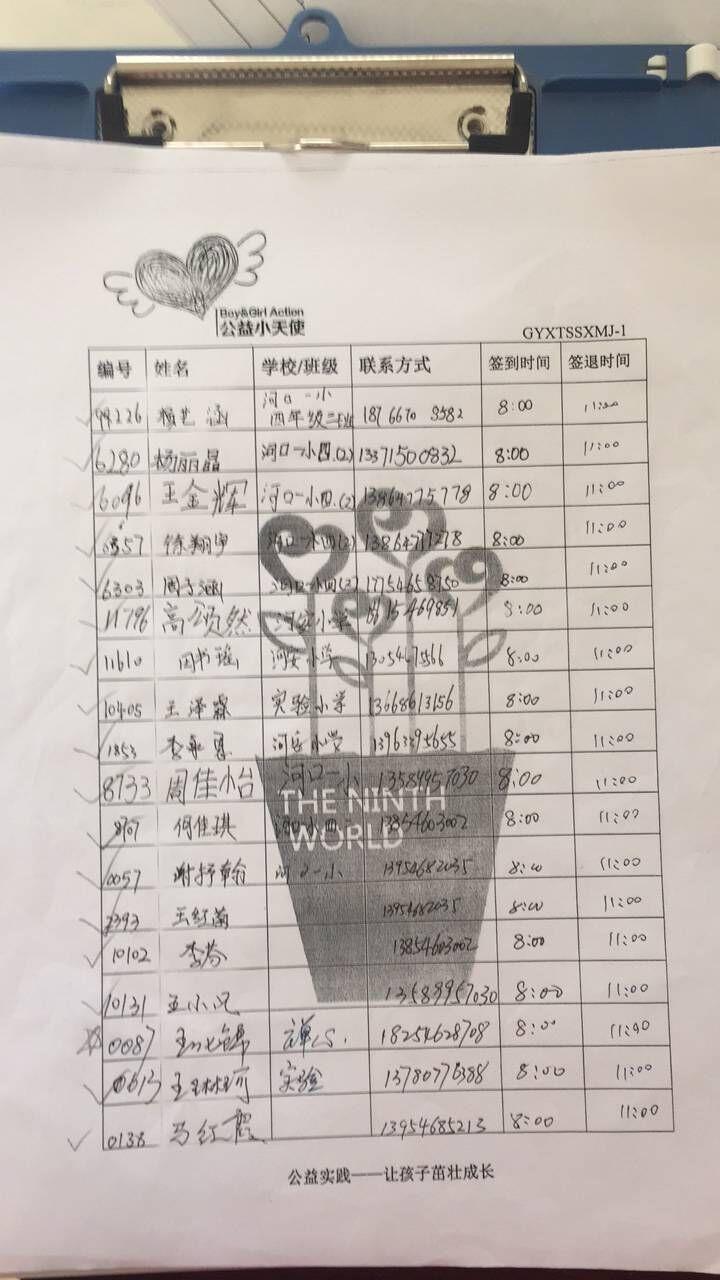 Boy&Girl Action
公益小天使
GYXTSSXMJ-1
编号 姓名 学校/班级 联系方式 签到时间 签退时间
河口一小
四年级二班 8:00 11:00
6280 杨丽晶 河口一小四.(2) 13371500832 8:00 11:00
6096 王金辉 河口一小四.(2) 13864775778 8:00 11:00
徐翔宇 河口一小四(2) 8:00 11:00
6303 周子涵 河口一小四(2) 17754658750 8:00 11:00
11796 高颂然 河安小学 8:00 11:00
11610 周书瑶 河安小学 8:00 11:00
10405 王泽霖 实验小学 13668613156 8:00 11:00
1853 河安小学 13963395655 8:00 11:00
8733 周佳怡 河口一小 13589957030 8:00 11:00
8707 何佳琪 13854603002 8:00 11:00
0057 谢抒翰 河口一小 13954682035 8:00 11:00
2393 王红菊 13954682035 8:00 11:00
10102 李芬 13854603002 8:00 11:00
10131 孟小凡 13589957030 8:00 11:00
0087 禅心. 18254628708 8:00 11:00
0613 实验 13780776388 8:00 11:00
0138 马红霞 13954685213 8:00 11:00
THE NINTH
WORLD
公益实践——让孩子茁壮成长